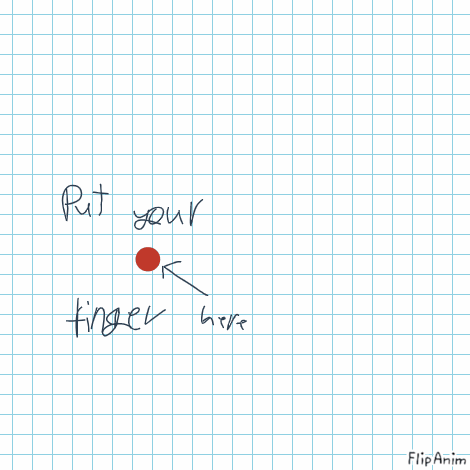 Put your
finger here
FlipAnim